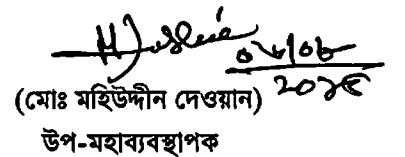 ০৬/০৮
২০১৫
(মোঃ মহিউদ্দীন দেওয়ান)
উপ-মহাব্যবস্থাপক